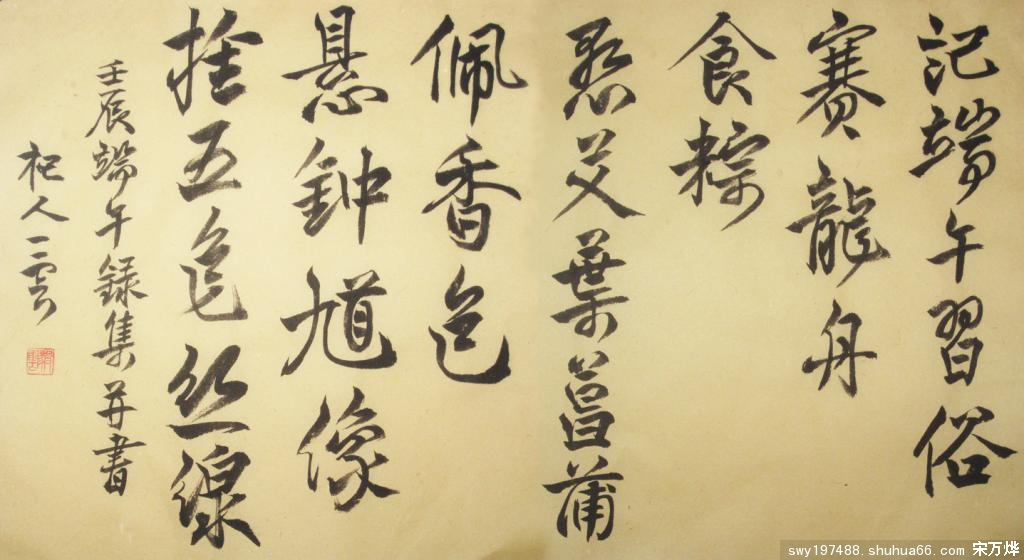 記端午習俗
賽龍舟
食粽
悬艾葉菖蒲
佩香包
悬鈡馗像
拴五色丝線
壬辰端午録集并書
杞人雲
swy197488.shuhua66.com 宋万烨